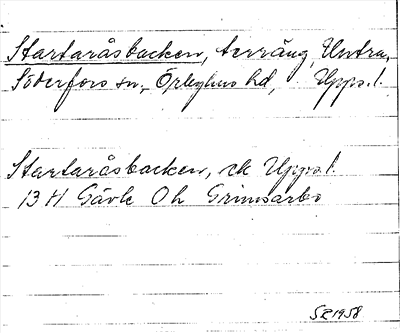 Startaråsbacken, terräng, Untra,
Söderfors sn, Örbyhus hd, Upps.l.
Startaråsbacken, ek Upps.l.
13 H Gävle 0h Grimsarbo
SR 1958